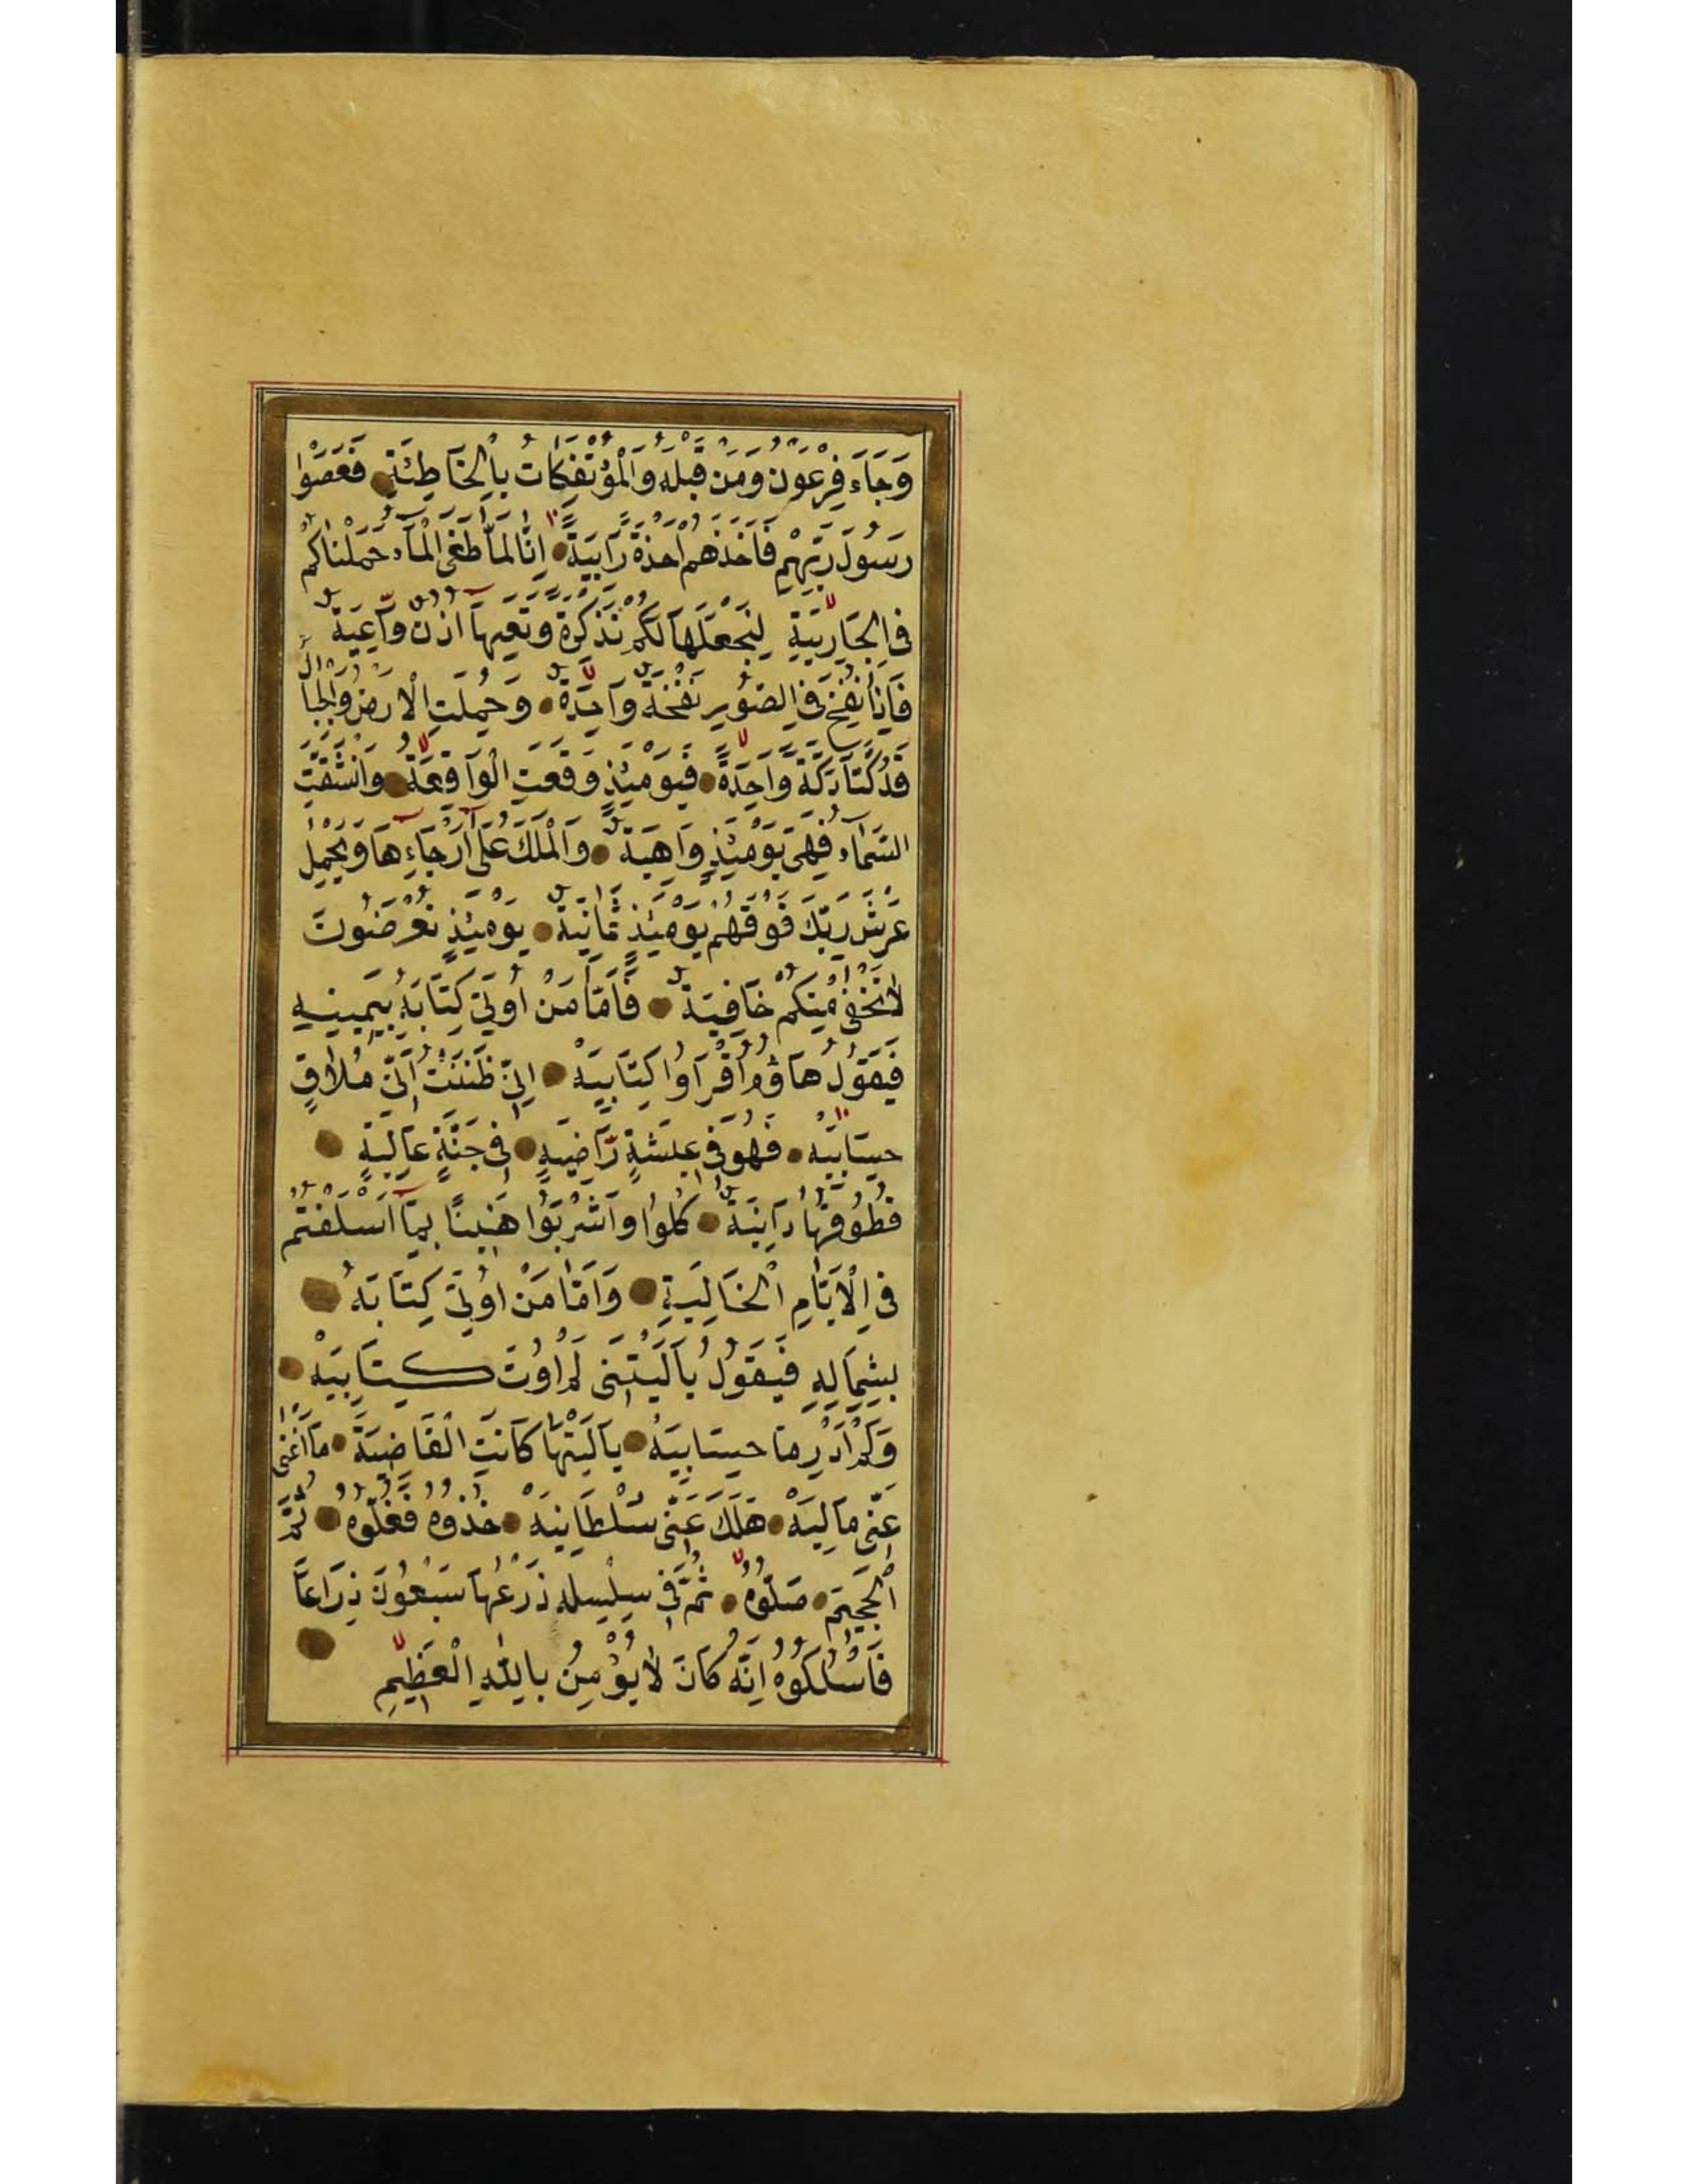 وَجَاءَ فِرْعَوْنُ وَمَنْ قَبْلَهُ وَالْمُؤْتَفِكَاتُ بِالْخَاطِئَةِ فَعَصَوْا
رَسُولَ رَبِّهِمْ فَاَخَذَهُمْ اَخْذَةً رَابِيَةً اِنَّا لَمَّا طَغَى الْمَآءُ حَمَلْنَاكُمْ
فِى الْجَارِيَةِ لِنَجْعَلَهَا لَكُمْ تَذْكِرَةً وَتَعِيَهَآ اُذُنٌ وَاعِيَةٌ
فَاِذَا نُفِخَ فِى الصُّورِ نَفْخَةٌ وَاحِدَةٌ وَحُمِلَتِ الْاَرْضُ وَالْجِبَالُ
فَدُكَّتَا دَكَّةً وَاحِدَةً فَيَوْمَئِذٍ وَقَعَتِ الْوَاقِعَةُ وَانْشَقَّتِ
السَّمَاءُ فَهِىَ يَوْمَئِذٍ وَاهِيَةٌ وَالْمَلَكُ عَلَى اَرْجَاءِهَا وَيَحْمِلُ
عَرْشَ رَبِّكَ فَوْقَهُمْ يَوْمَئِذٍ ثَمَانِيَةٌ يَوْمَئِذٍ تُعْرَضُونَ
لَا تَخْفَى مِنْكُمْ خَافِيَةٌ فَاَمَّا مَنْ اُوتِىَ كِتَابَهُ بِيَمِينِهِ
فَيَقُولُ هَاؤُمُ اقْرَاُوا كِتَابِيَهْ اِنِّى ظَنَنْتُ اَنِّى مُلَاقٍ
حِسَابِيَهْ فَهُوَ فِى عِيشَةٍ رَاضِيَةٍ فِى جَنَّةٍ عَالِيَةٍ
قُطُوفُهَا دَانِيَةٌ كُلُوا وَاشْرَبُوا هَنِيئًا بِمَآ اَسْلَفْتُمْ
فِى الْاَيَّامِ الْخَالِيَةِ وَاَمَّا مَنْ اُوتِىَ كِتَابَهُ
بِشِمَالِهِ فَيَقُولُ يَالَيْتَنِى لَمْ اُوتَ كِتَابِيَهْ
وَلَمْ اَدْرِ مَا حِسَابِيَهْ يَالَيْتَهَا كَانَتِ الْقَاضِيَةَ مَا اَغْنَى
عَنِّى مَالِيَهْ هَلَكَ عَنِّى سُلْطَانِيَهْ خُذُوهُ فَغُلُّوهُ ثُمَّ
الْجَحِيمَ صَلُّوهُ ثُمَّ فِى سِلْسِلَةٍ ذَرْعُهَا سَبْعُونَ ذِرَاعًا
فَاسْلُكُوهُ اِنَّهُ كَانَ لَا يُؤْمِنُ بِاللّٰهِ الْعَظِيمِ